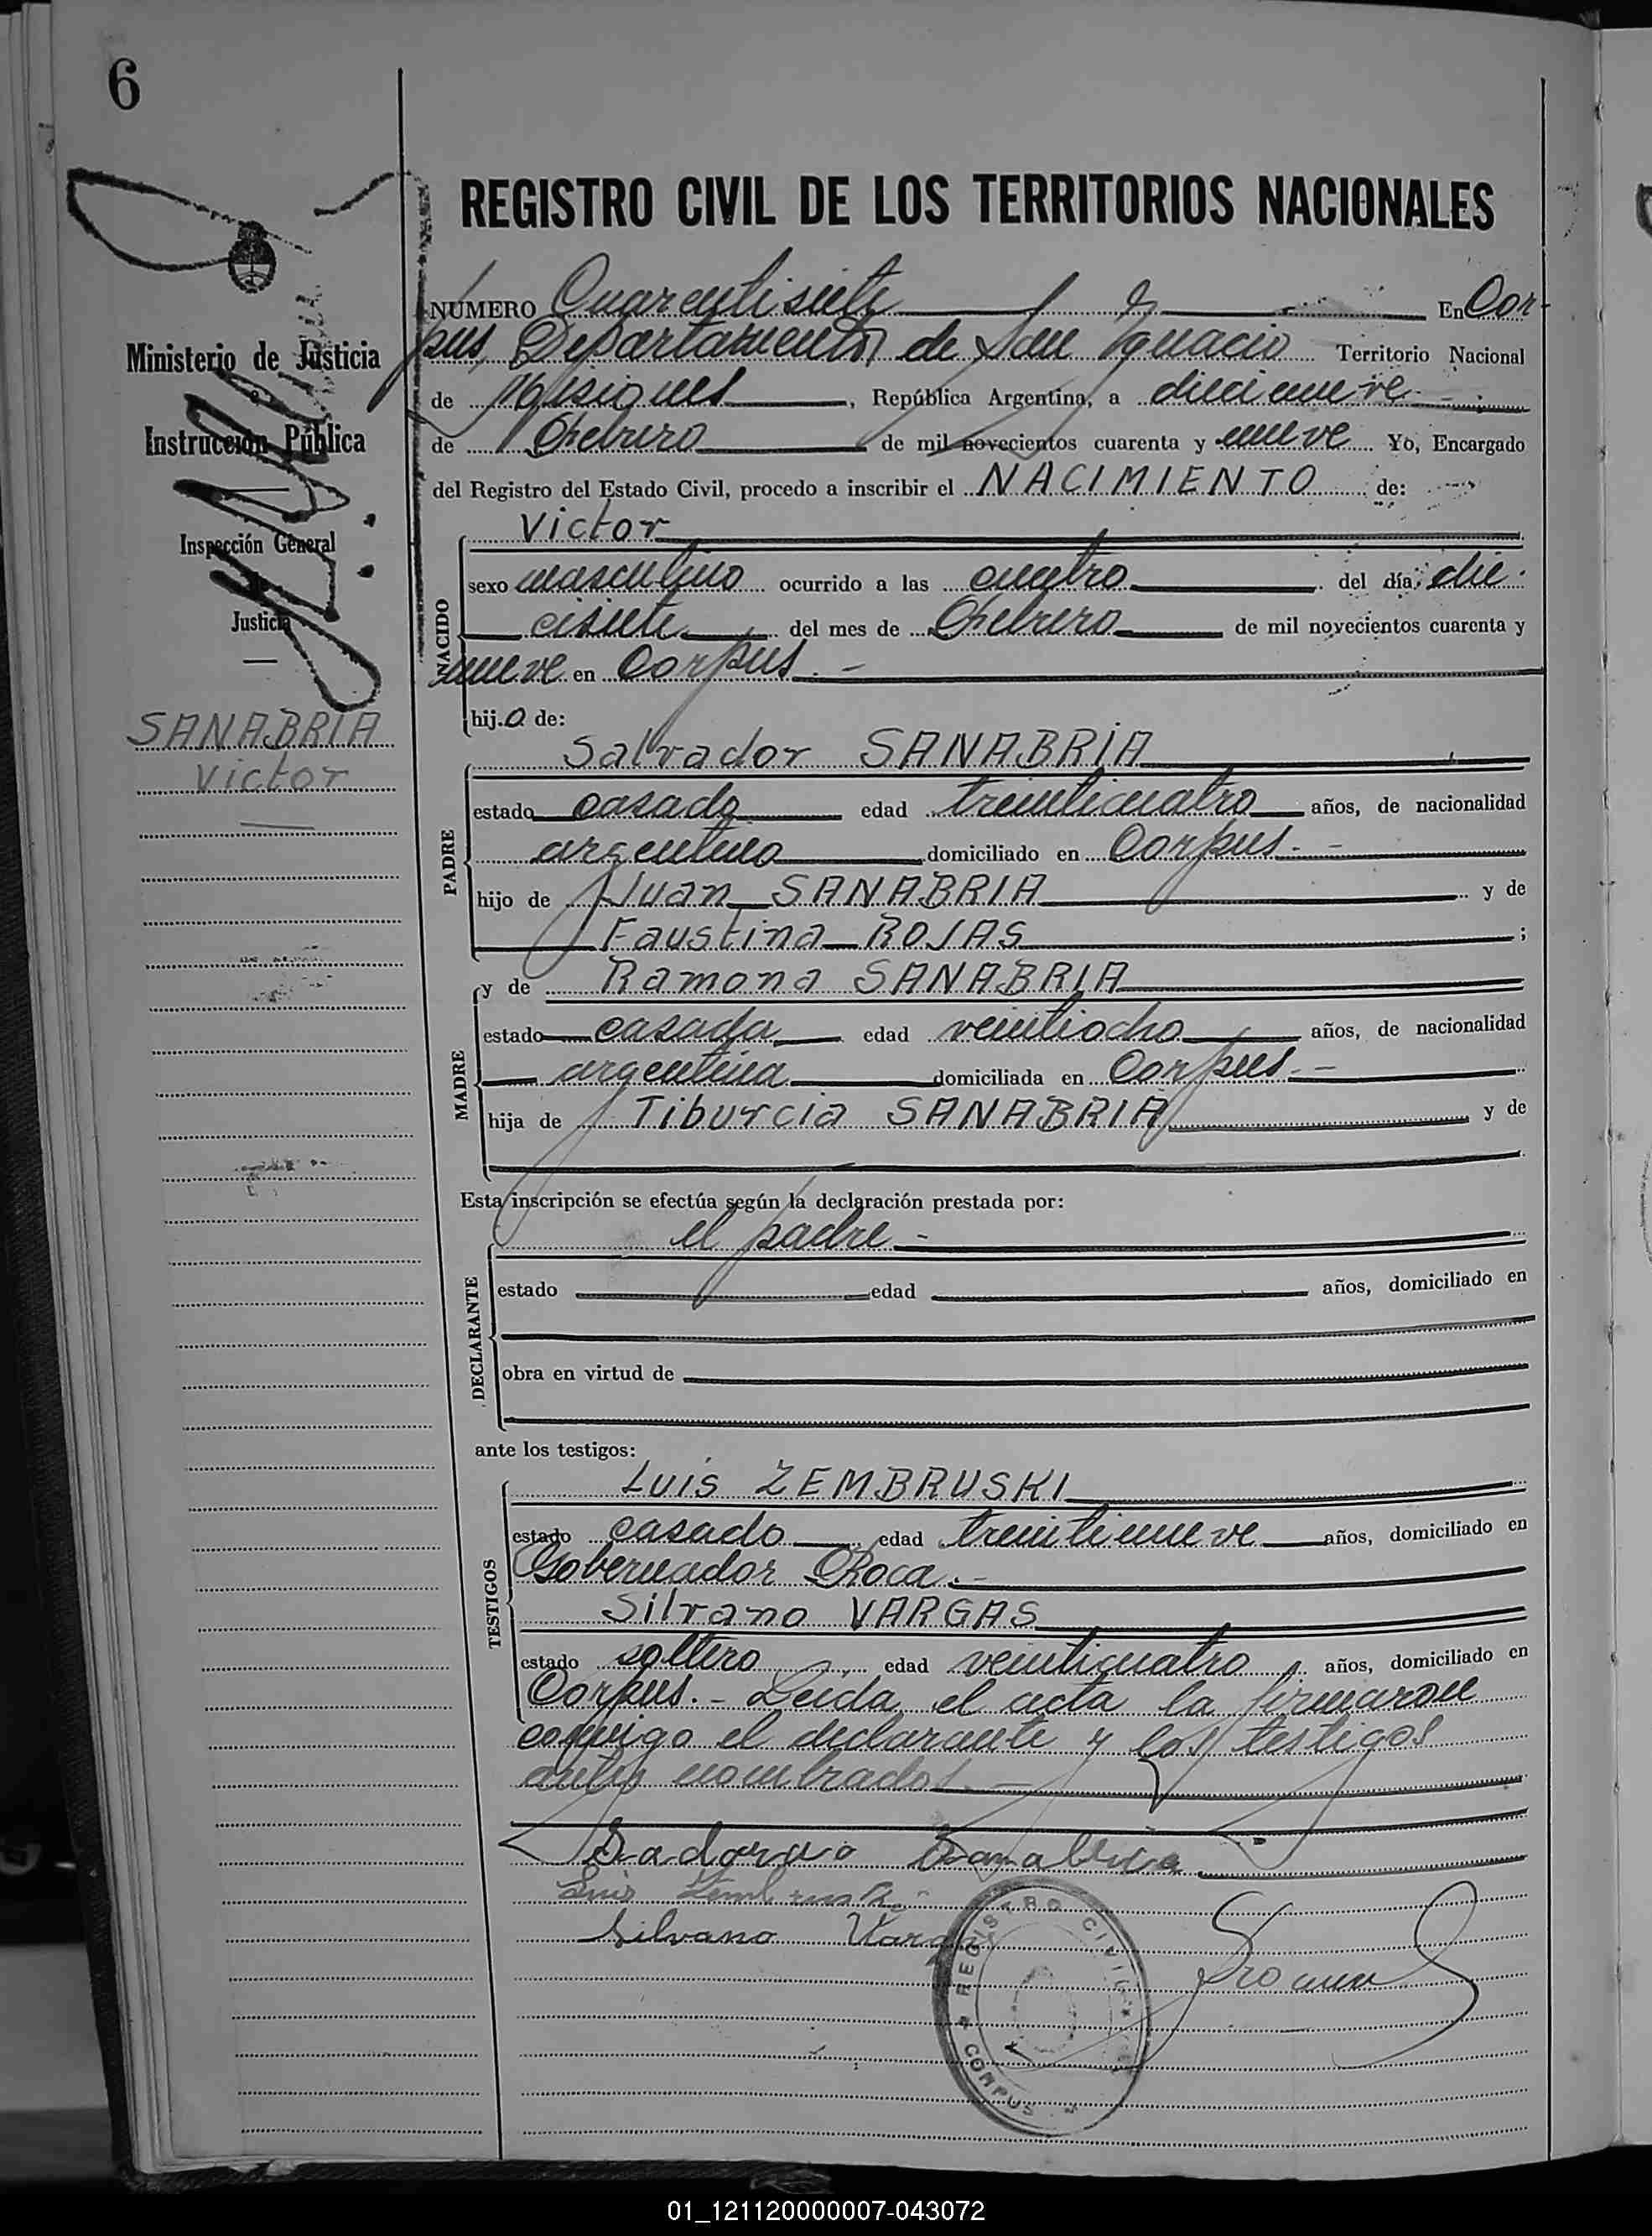 6
REGISTRO CIVIL DE LOS TERRITORIOS NACIONALES
NÚMERO Cuarentisiete En Cor-
pus, Departamento de San Ignacio Territorio Nacional
de Misiones, República Argentina, a diecinueve
de Febrero de mil novecientos cuarenta y nueve Yo, Encargado
del Registro del Estado Civil, procedo a inscribir el NACIMIENTO de:
Victor
sexo masculino ocurrido a las cuatro del día die
cisiete del mes de Febrero de mil novecientos cuarenta y
nueve en Corpus.-
hijo de:
Salvador SANABRIA
estado casado edad treinticuatro años, de nacionalidad
argentino domiciliado en Corpus.-
hijo de Juan SANABRIA y de
Faustina ROJAS ;
y de Ramona SANABRIA
estado casada edad veintiocho años, de nacionalidad
argentina domiciliada en Corpus.-
hija de Tiburcia SANABRIA y de
Esta inscripción se efectúa según la declaración prestada por:
el padre.-
estado edad años, domiciliado en
obra en virtud de
ante los testigos:
Luis ZEMBRUSKI
estado casado edad treintinueve años, domiciliado en
Gobernador Roca.-
Silvano VARGAS
estado soltero edad veinticuatro años, domiciliado en
Corpus.- Leida el acta la firmaron
conmigo el declarante y los testigos
antes nombrados.-
Sanabria
Luis Zembruski
Silvano Vargas
REGISTRO CIVIL
CORPUS
Ministerio de Justicia
Instrucción Pública
Inspección General
Justicia
SANABRIA
Victor
NACIDO
PADRE
MADRE
DECLARANTE
TESTIGOS
01_121120000007-043072